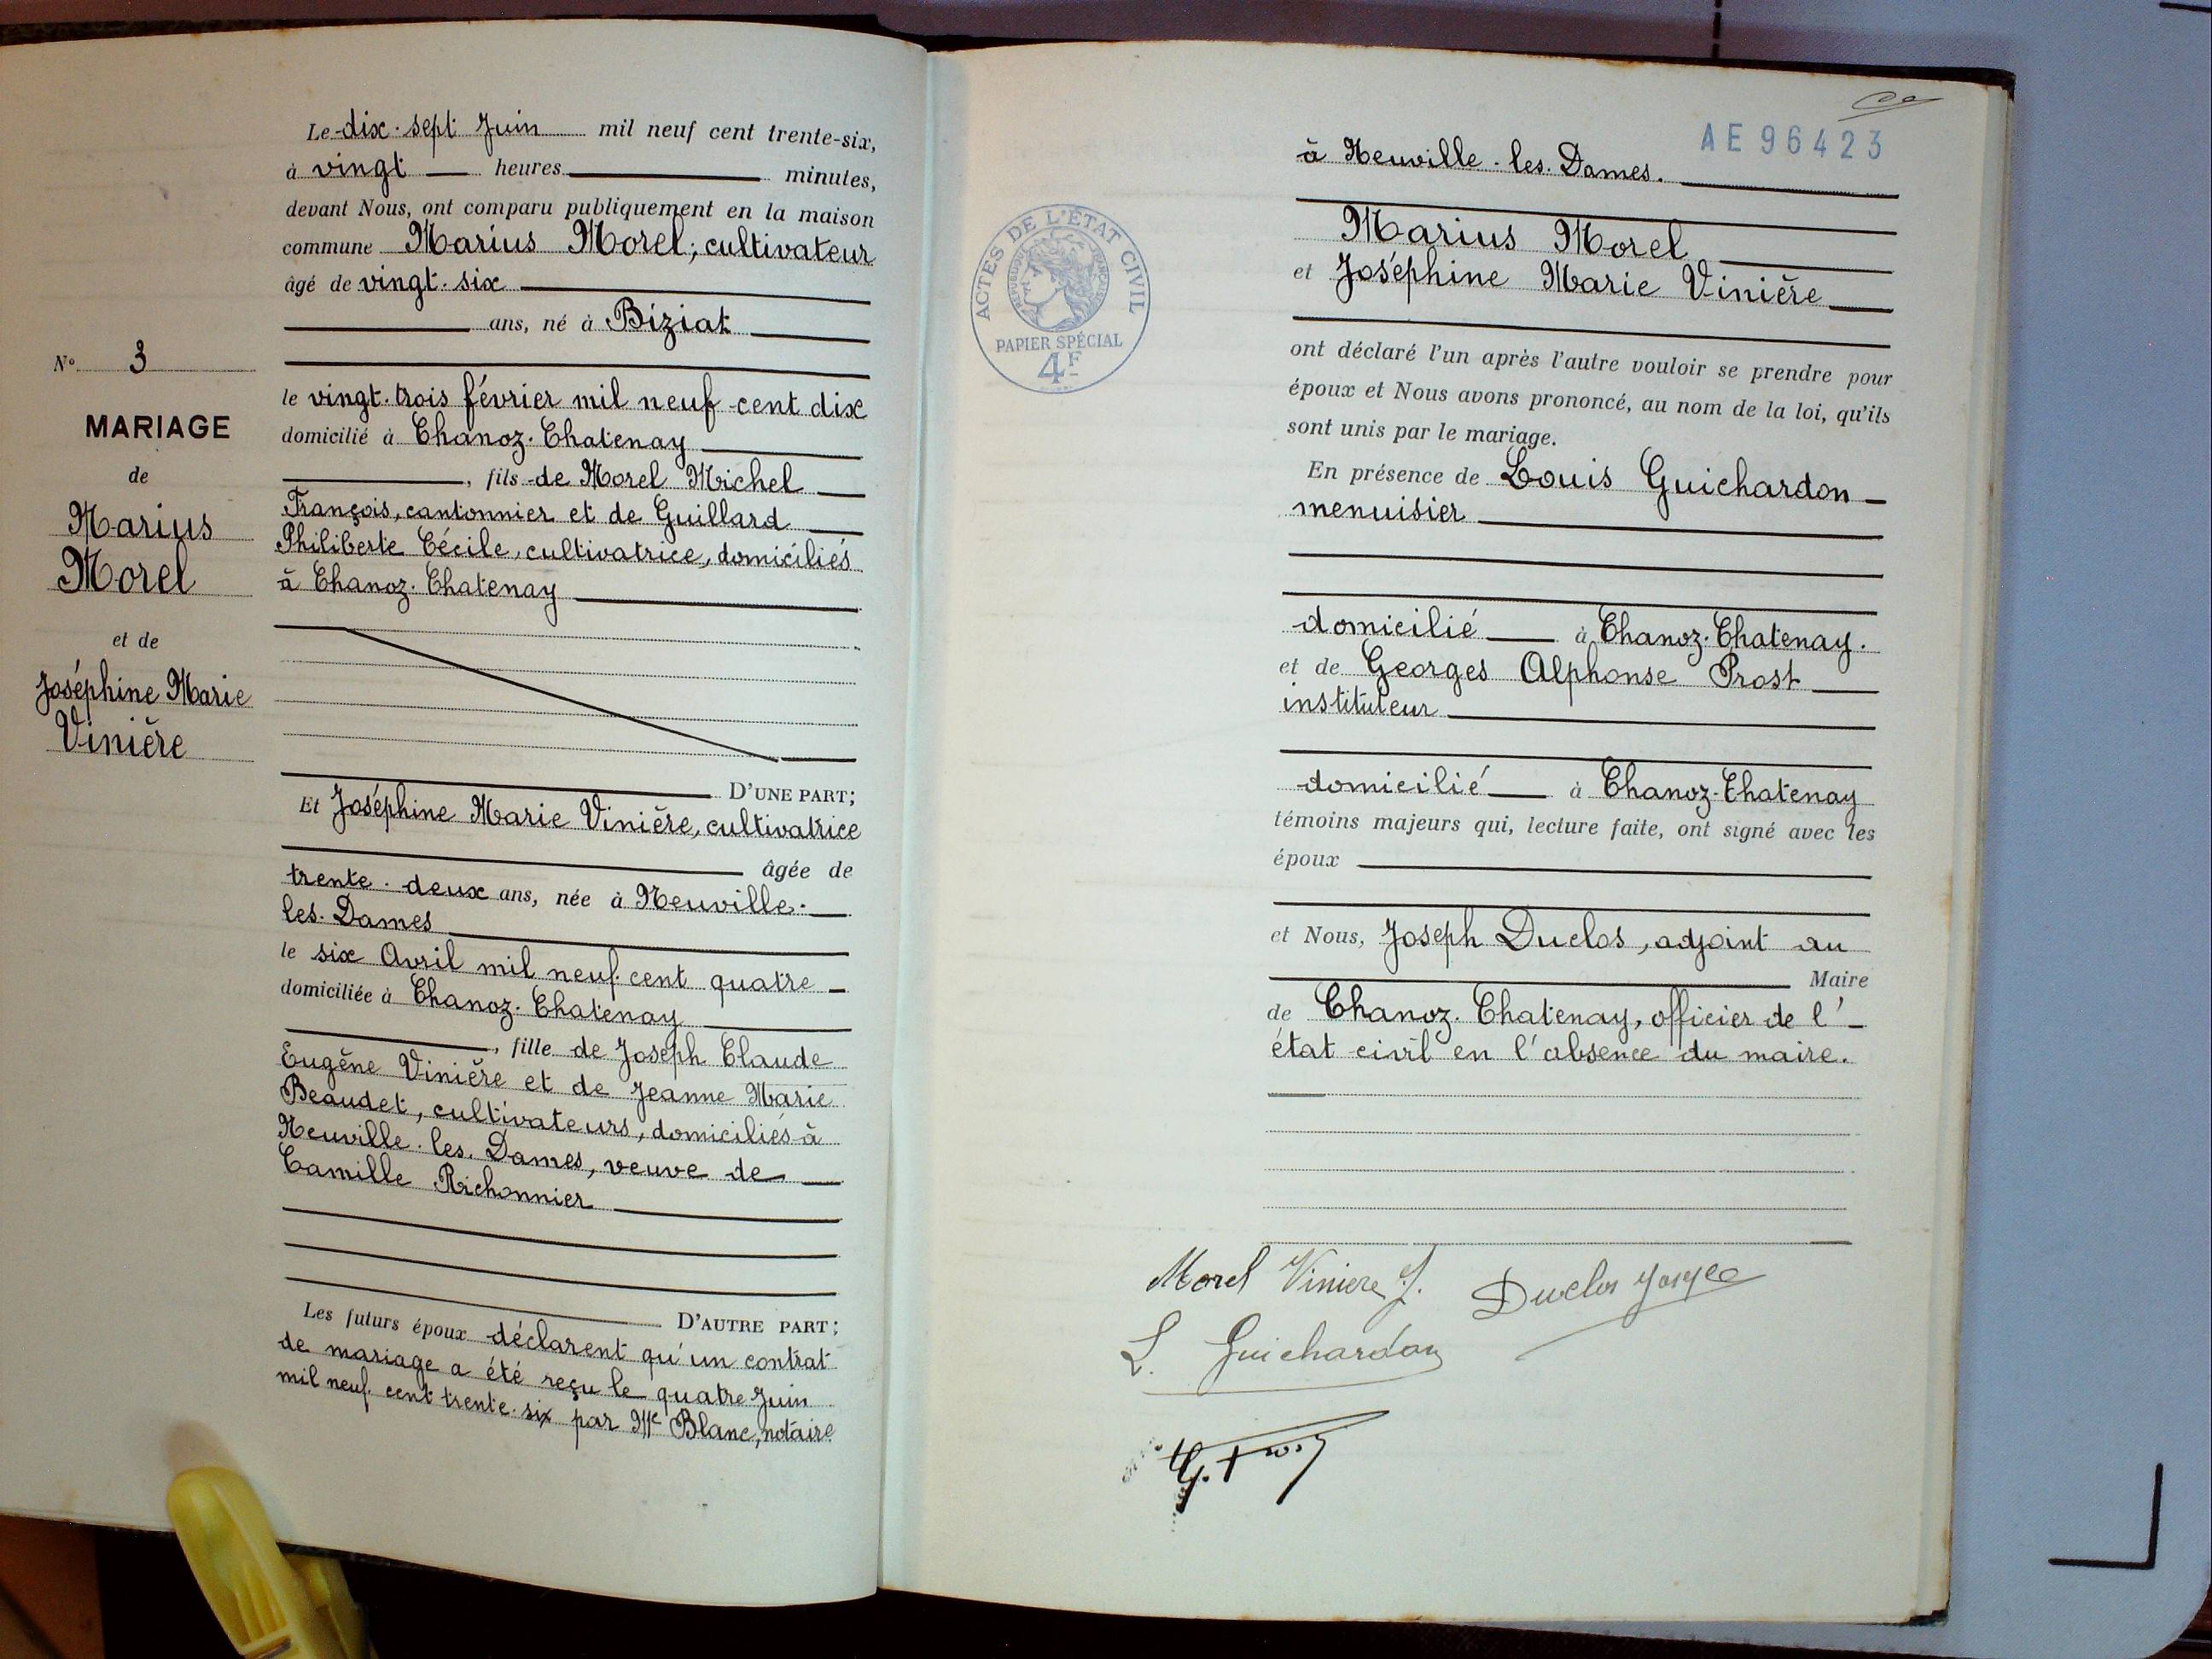 N° 3
MARIAGE
de
Marius
Morel
et de
Joséphine Marie
Vinière
Le dix-sept Juin mil neuf cent trente-six,
à vingt heures minutes,
devant Nous, ont comparu publiquement en la maison
commune Marius Morel, cultivateur
âgé de vingt-six
ans, né à Biziat
le vingt-trois février mil neuf cent dix
domicilié à Chanoz-Chatenay
, fils de Morel Michel
François, cantonnier et de Guillard
Philiberte Cécile, cultivatrice, domiciliés
à Chanoz-Chatenay
D'UNE PART;
Et Joséphine Marie Vinière, cultivatrice
âgée de
trente-deux ans, née à Neuville-
les-Dames
le six Avril mil neuf cent quatre
domiciliée à Chanoz-Chatenay
, fille de Joseph Claude
Eugène Vinière et de Jeanne Marie
Beaudet, cultivateurs, domiciliés à
Neuville-les-Dames, veuve de
Camille Richonnier
D'AUTRE PART;
Les futurs époux déclarent qu'un contrat
de mariage a été reçu le quatre Juin
mil neuf cent trente-six par Me Blanc, notaire
AE96423
à Neuville-les-Dames.
ACTES DE L'ÉTAT CIVIL
RÉPUBLIQUE FRANÇAISE
PAPIER SPÉCIAL
4F
Marius Morel
et Joséphine Marie Vinière
ont déclaré l'un après l'autre vouloir se prendre pour
époux et Nous avons prononcé, au nom de la loi, qu'ils
sont unis par le mariage.
En présence de Louis Guichardon
menuisier
domicilié à Chanoz-Chatenay.
et de Georges Alphonse Prost
instituteur
domicilié à Chanoz-Chatenay
témoins majeurs qui, lecture faite, ont signé avec les
époux
et Nous, Joseph Duclos, adjoint au
Maire
de Chanoz-Chatenay, officier de l'
état civil en l'absence du maire.
Morel Viniere J. Duclos
L. Guichardon